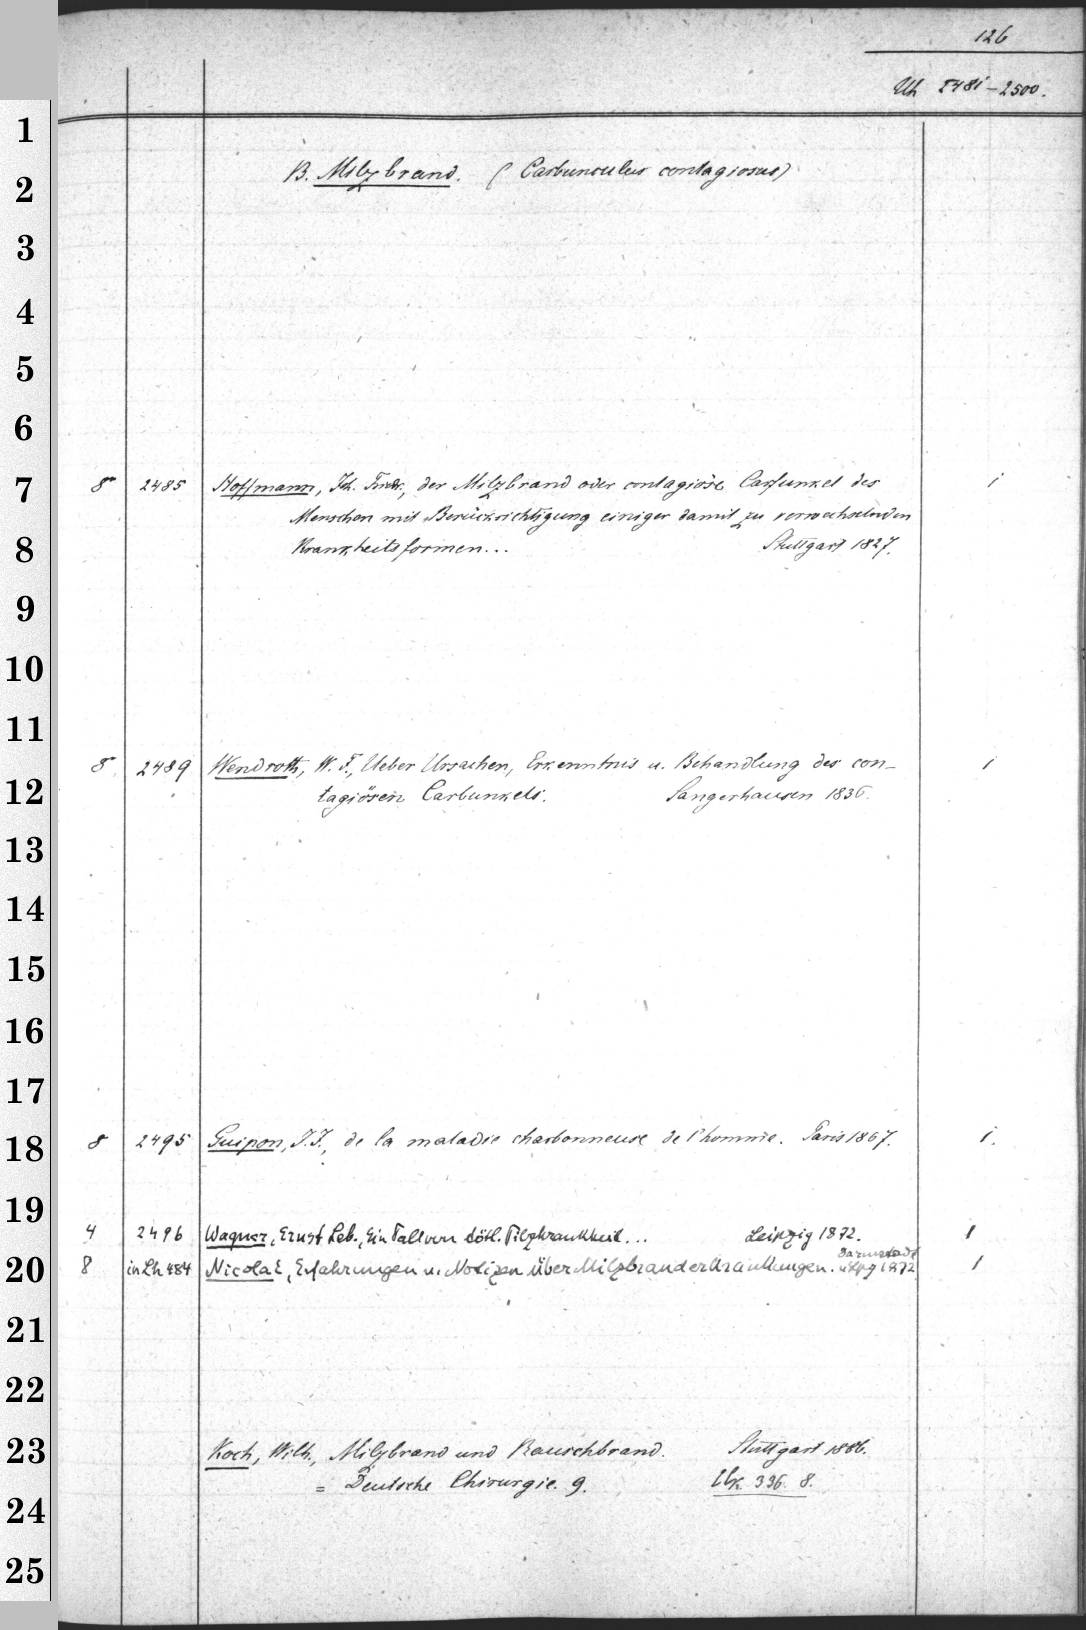 126
Uh 2481-2500.
B. Milzbrand. (Carbunculus contagiosus)
8 2485 Hoffmann, Jh. Friedr., der Milzbrand oder contagiöse Carfunkel des 1
Menschen mit Berücksichtigung einiger damit zu verwechselnden
Krankheitsformen... Stuttgart 1827.
8 2489 Wendroth, W. F., Ueber Ursachen, Erkenntnis u. Behandlung des con- 1
tagiösen Carbunkels. Sangerhausen 1836.
8 2495 Guipon, J. J., de la maladie charbonneuse de l'homme. Paris 1867. 1.
4 2496 Wagner, Ernst Leb., Ein Fall von tötl. Pilzkrankheit... Leipzig 1872. 1
Darmstadt
8 in Lh 484 Nicolai, Erfahrungen u. Notizen über Milzbranderkrankungen. u Lpzg 1872 1
Koch, Wilh., Milzbrand und Rauschbrand. Stuttgart 1886.
= Deutsche Chirurgie. 9. Uk. 336. 8.
1
2
3
4
5
6
7
8
9
10
11
12
13
14
15
16
17
18
19
20
21
22
23
24
25